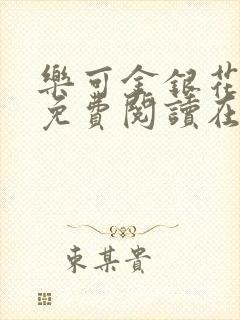 樂可金銀花
免費閱讀在
東某貴